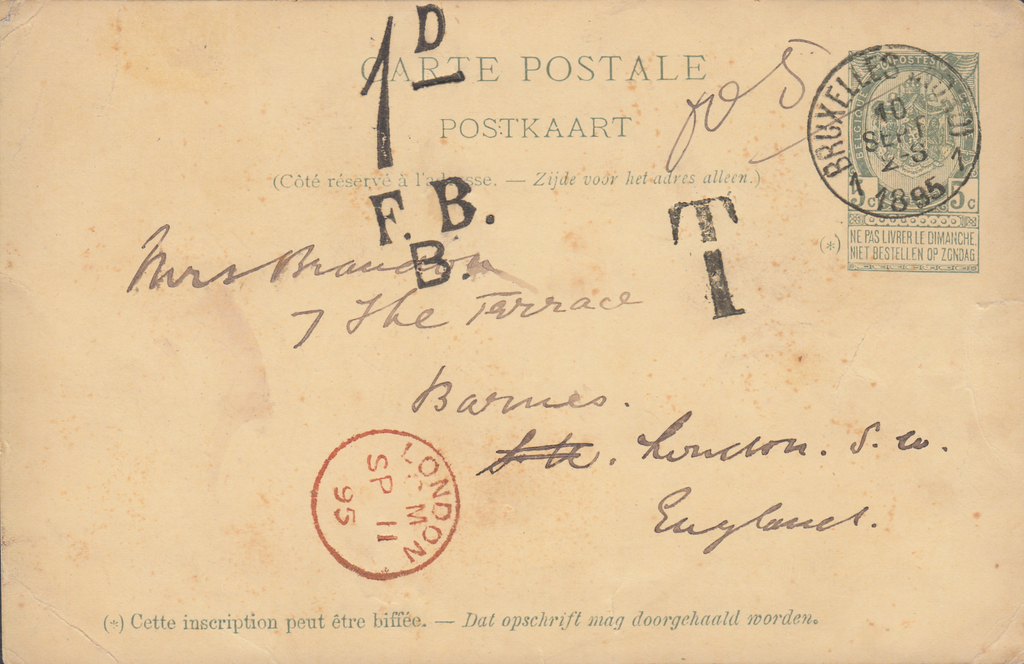 1D
CARTE POSTALE
POSTKAART
(Côté réservé à l'adresse. — Zijde voor het adres alleen.)
BRUXELLES
10
SEPT
2-S
1 1895 1
BELGIQUE POSTES
5c 5c
(*)
NE PAS LIVRER LE DIMANCHE
NIET BESTELLEN OP ZONDAG
F. B.
B.
T
Mrs Brandon
7 The Terrace
Barnes.
London. S. W.
England.
LONDON
MON
SP 11
95
(*) Cette inscription peut être biffée. — Dat opschrift mag doorgehaald worden.